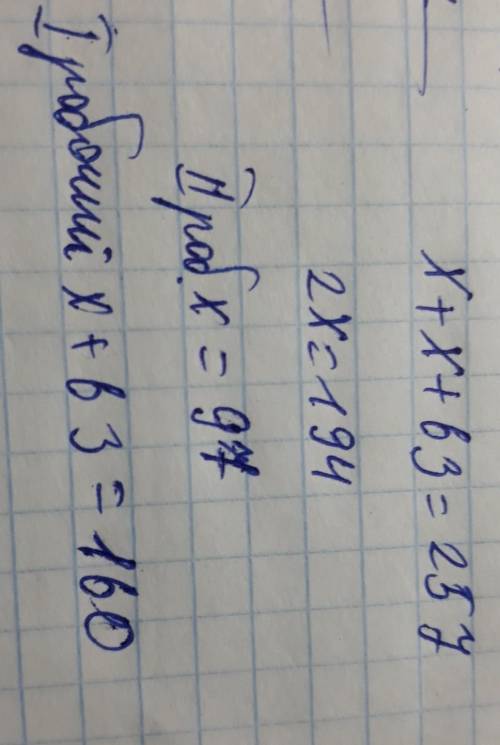 x + x + 63 = 257
2x = 194
II раб. x = 97
I рабочий x + 63 = 160